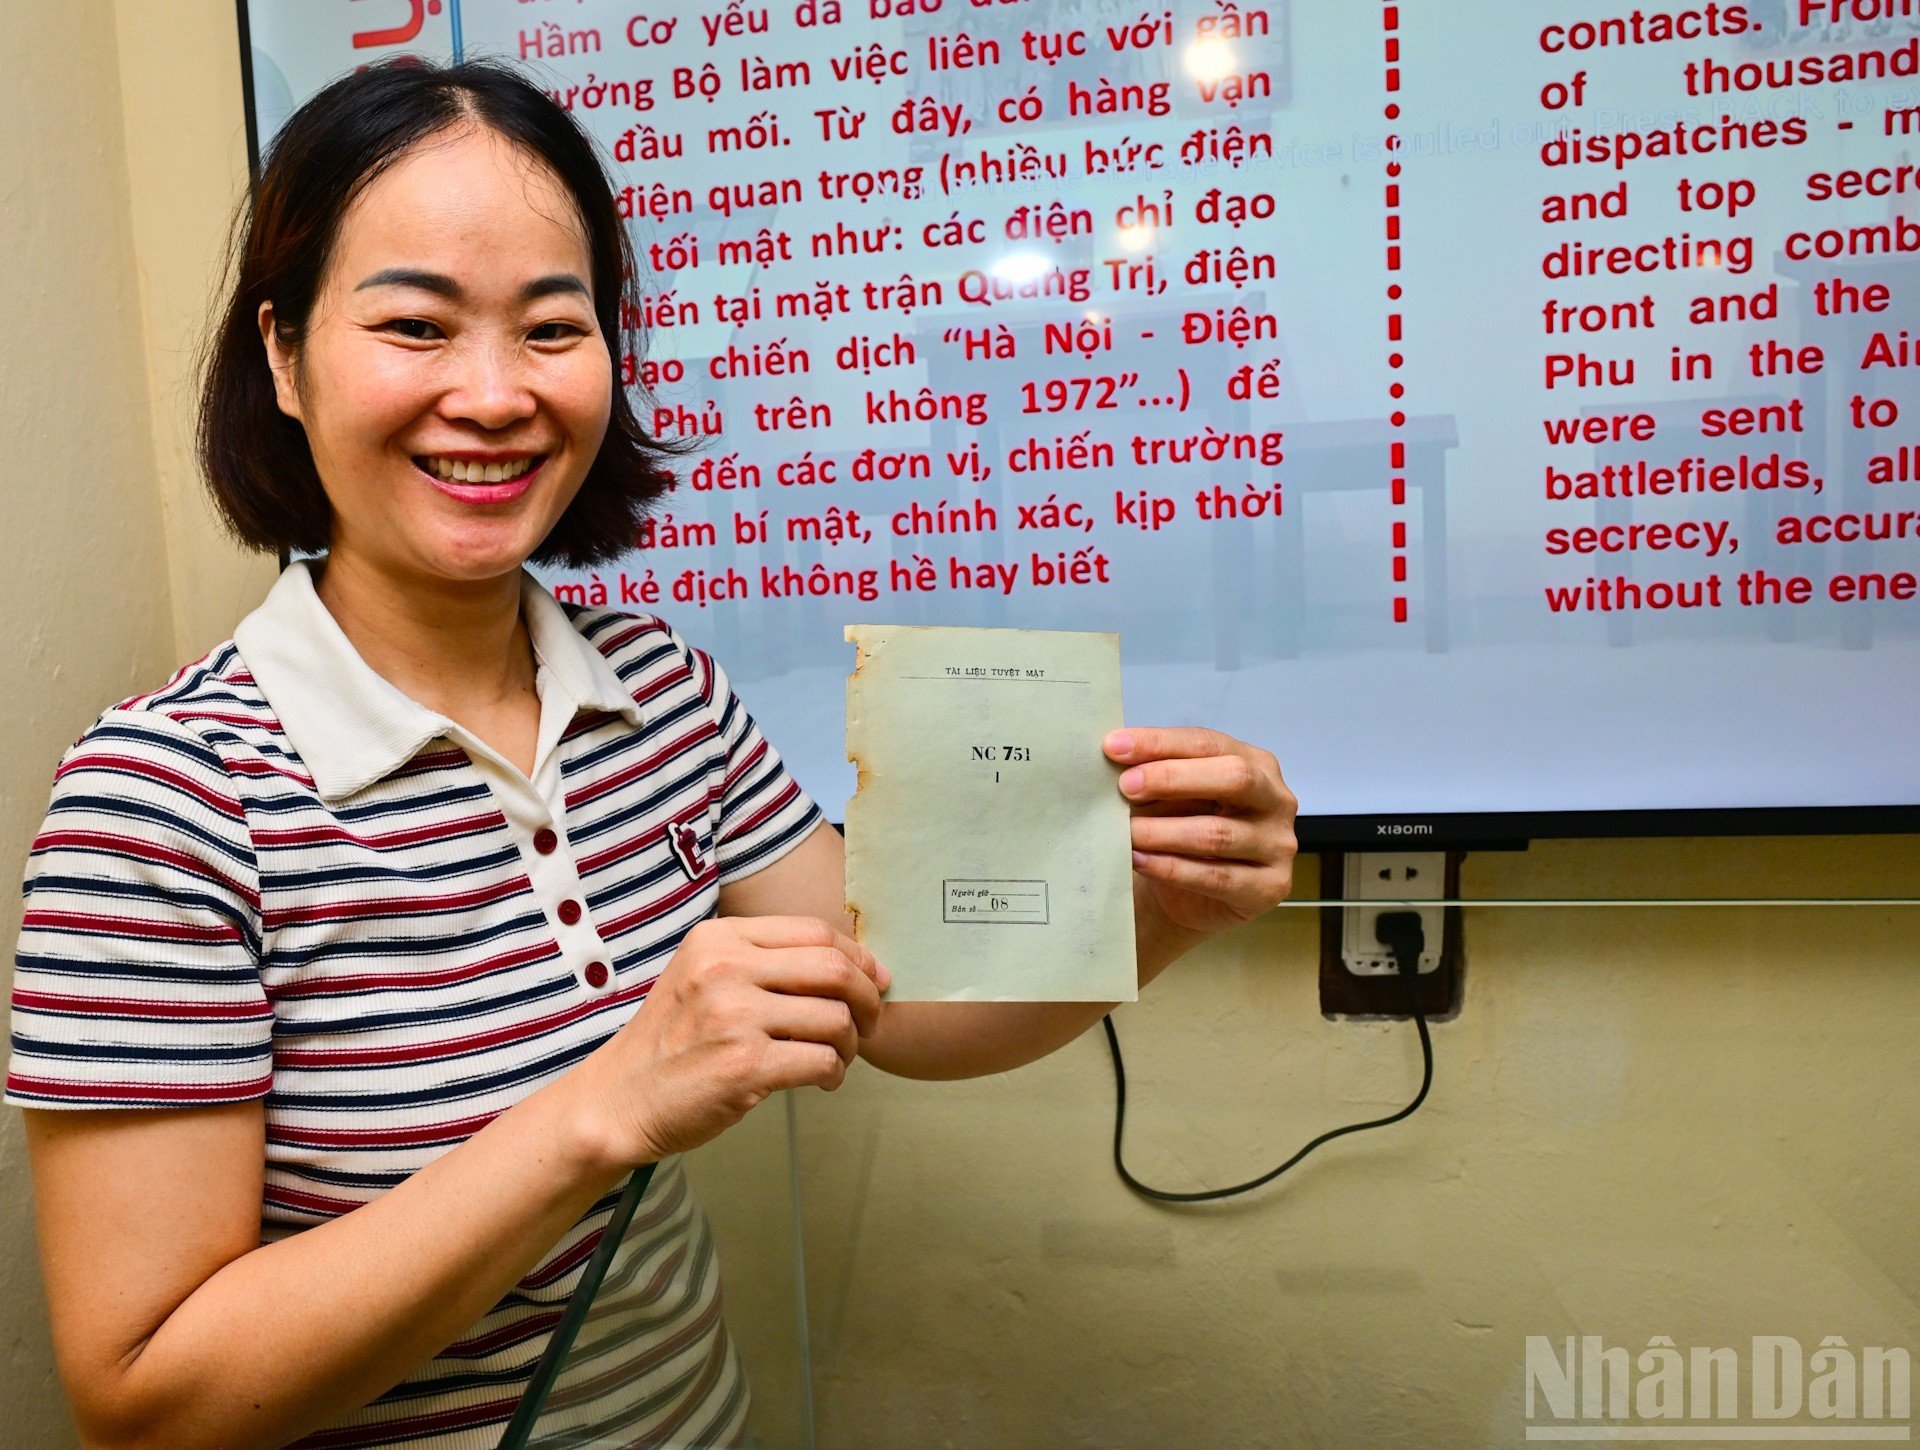 Hầm Cơ yếu đã bảo
ưởng Bộ làm việc liên tục với gần
đầu mối. Từ đây, có hàng vạn
điện quan trọng (nhiều bức điện
tối mật như: các điện chỉ đạo
hiến tại mặt trận Quảng Trị, điện
đạo chiến dịch “Hà Nội - Điện
Phủ trên không 1972”...) để
đến các đơn vị, chiến trường
đảm bí mật, chính xác, kịp thời
mà kẻ địch không hề hay biết
contacts. From
of thousand
dispatches - m
and top secre
directing comb
front and the
Phu in the Air
were sent to
battlefields, all
secrecy, accura
without the ene
storage device is pulled out. Press BACK to ex
TÀI LIỆU TUYỆT MẬT
NC 751
I
Người giữ
Bản số 08
xiaomi
Nhân Dân